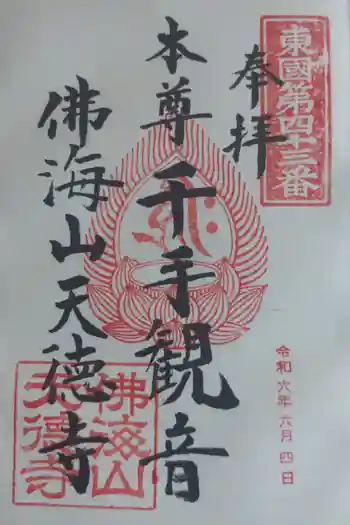 東國第四十三番
奉拝
本尊千手観音
佛海山天徳寺
令和六年六月四日
佛海山
天德寺